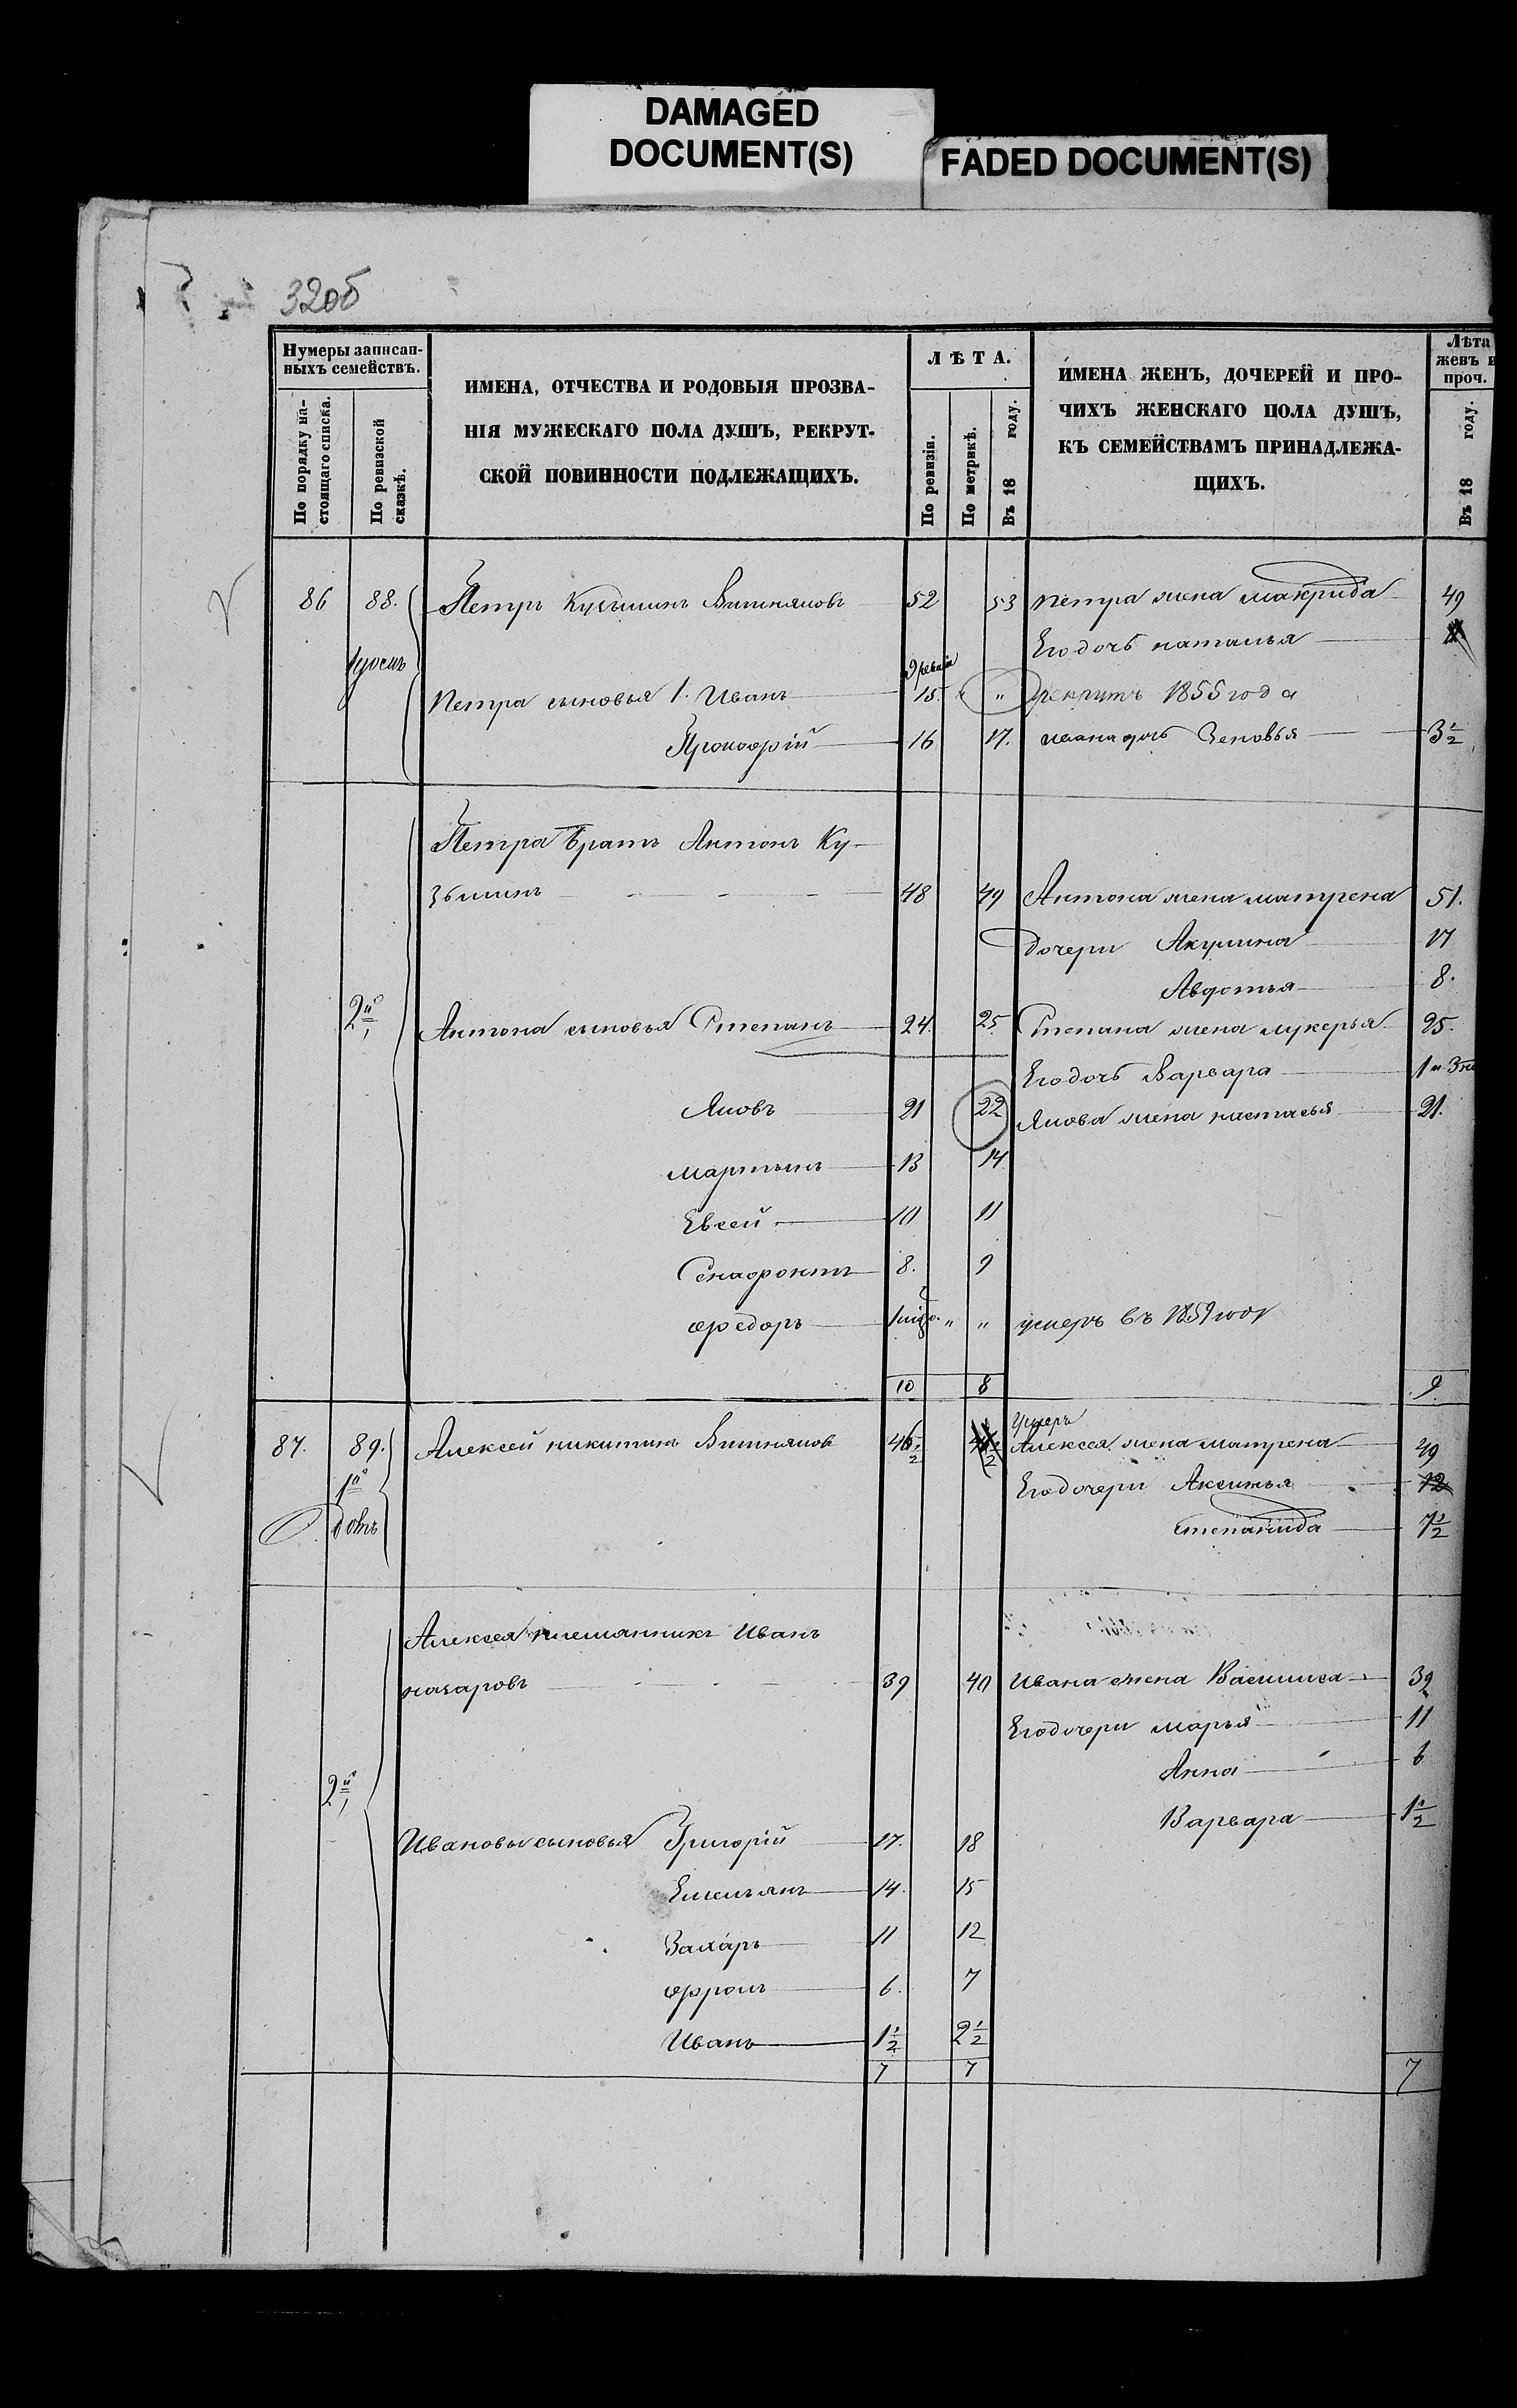 DAMAGED
DOCUMENT(S)
FADED DOCUMENT(S)
32об
Нумеры записан-
ныхъ семействъ.
По порядку на-
стоящаго списка.
По ревизской
сказкѣ.
ИМЕНА, ОТЧЕСТВА И РОДОВЫЯ ПРОЗВА-
НІЯ МУЖЕСКАГО ПОЛА ДУШЪ, РЕКРУТ-
СКОЙ ПОВИННОСТИ ПОДЛЕЖАЩИХЪ.
ЛѢТА.
По ревизіи.
По метрикѣ.
Въ 18 году.
ИМЕНА ЖЕНЪ, ДОЧЕРЕЙ И ПРО-
ЧИХЪ ЖЕНСКАГО ПОЛА ДУШЪ,
КЪ СЕМЕЙСТВАМЪ ПРИНАДЛЕЖА-
ЩИХЪ.
Лѣта
женъ и
проч.
Въ 18 году.
86 88. Петръ Кузминъ Вишняковъ 52 53 Петра жена макрида 49
Его дочь наталья
Петра сыновья 1. Иванъ 15. " рекрутъ 1855 года
Прокофій 16 17. ивана дочь Зеновья 3½
Петра братъ Антонъ Ку-
зьминъ 48 49 Антона жена матрена 51.
дочери Акулина 17
Авдотья 8.
2й Антона сыновья Степанъ 24. 25. Степана жена лукерья 25.
Его дочь Варвара
Яковъ 21 22 Якова жена настасья 21.
мартынъ 13 14
Евсей 10 11
Ксенофонтъ 8. 9
федоръ " " умеръ въ 1859 году
10 8 9.
умеръ
87. 89. Алексей никитинъ Вишняковъ 46½ Алексея жена матрена 49
1й Его дочери Аксинья 12
степанида 7½
Алексея племянникъ Иванъ
назаровъ 39 40 Ивана жена Василиса 39
Его дочери марья 11
Анна 6
2й Варвара 1½
Ивановы сыновья Григорій 17. 18
Емельянъ 14. 15
Захаръ 11 12
фролъ 6. 7
Иванъ 1½ 2½
7 7 7